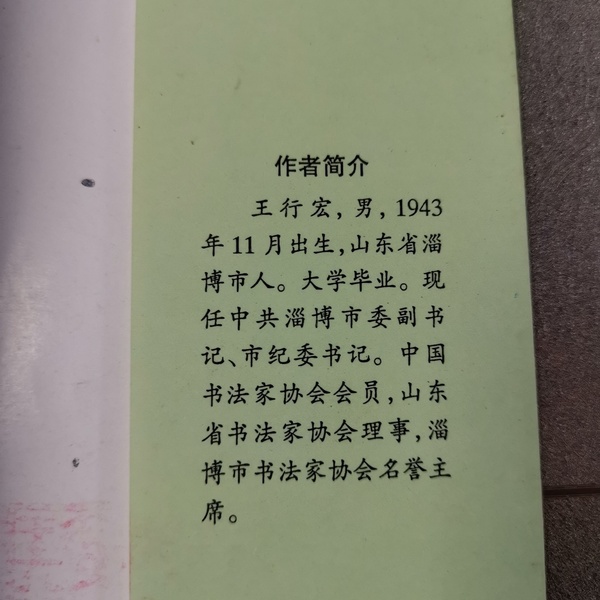 作者简介
王行宏,男,1943
年11月出生,山东省淄
博市人。大学毕业。现
任中共淄博市委副书
记、市纪委书记。中国
书法家协会会员,山东
省书法家协会理事,淄
博市书法家协会名誉主
席。